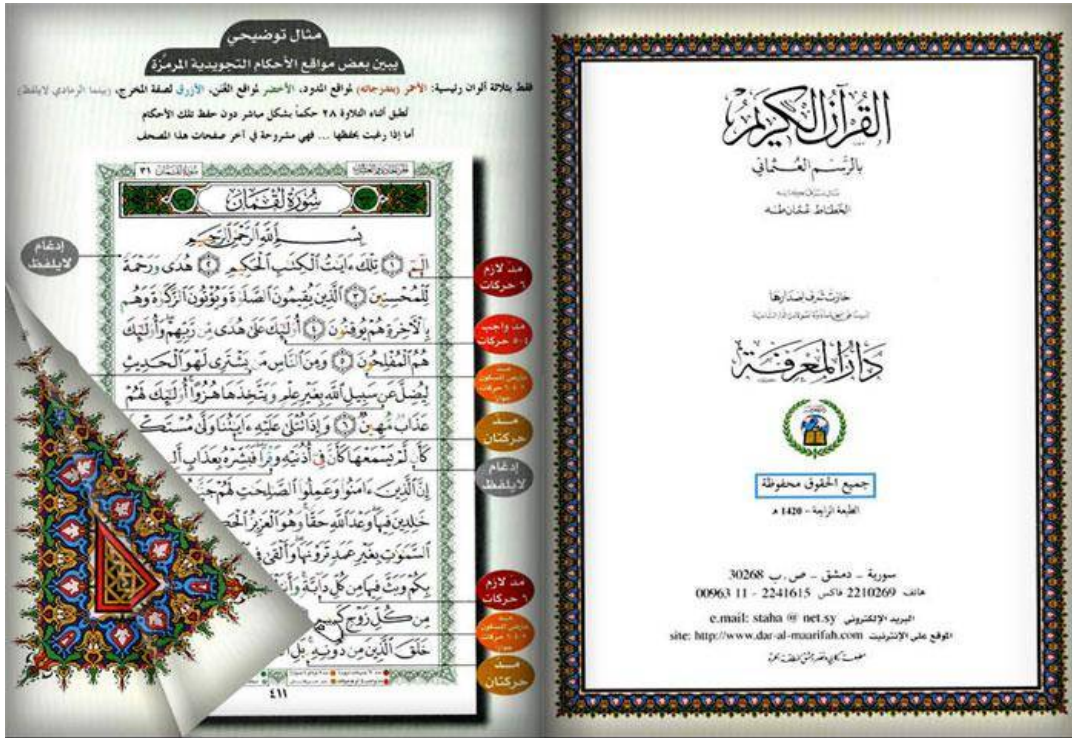 القرآن الكريم
بالرسم العثماني
الخطاط عثمان طه
حازت شرف إصدارها
دار المعرفة
جميع الحقوق محفوظة
الطبعة الرابعة - 1420 هـ
سورية - دمشق - ص.ب 30268
هاتف 2210269 فاكس 2241615 - 11 00963
البريد الإلكتروني e.mail: staha @ net.sy
الموقع على الإنترنيت site: http://www.dar-al-maarifah.com
مثال توضيحي
يبين بعض مواقع الأحكام التجويدية المرمزة
فقط بثلاثة ألوان رئيسية: الأحمر (بتدرجاته) لمواقع المدود، الأخضر لمواقع الغنن، الأزرق لصفة المخرج، (بينما الرمادي لايلفظ)
تُطبق أثناء التلاوة ٢٨ حكماً بشكل مباشر دون حفظ تلك الأحكام
أما إذا رغبت بحفظها ... فهي مشروحة في آخر صفحات هذا المصحف
سورة لقمان ٣١
سُورَةُ لُقْمَانَ
بِسْمِ ٱللَّهِ ٱلرَّحْمَٰنِ ٱلرَّحِيمِ
الٓمٓ ١ تِلْكَ ءَايَٰتُ ٱلْكِتَٰبِ ٱلْحَكِيمِ ٢ هُدًى وَرَحْمَةً
لِّلْمُحْسِنِينَ ٣ ٱلَّذِينَ يُقِيمُونَ ٱلصَّلَوٰةَ وَيُؤْتُونَ ٱلزَّكَوٰةَ وَهُم
بِٱلْءَاخِرَةِ هُمْ يُوقِنُونَ ٤ أُو۟لَٰٓئِكَ عَلَىٰ هُدًى مِّن رَّبِّهِمْ وَأُو۟لَٰٓئِكَ
هُمُ ٱلْمُفْلِحُونَ ٥ وَمِنَ ٱلنَّاسِ مَن يَشْتَرِى لَهْوَ ٱلْحَدِيثِ
لِيُضِلَّ عَن سَبِيلِ ٱللَّهِ بِغَيْرِ عِلْمٍ وَيَتَّخِذَهَا هُزُوًا أُو۟لَٰٓئِكَ لَهُمْ
عَذَابٌ مُّهِينٌ ٦ وَإِذَا تُتْلَىٰ عَلَيْهِ ءَايَٰتُنَا وَلَّىٰ مُسْتَكْ
كَأَن لَّمْ يَسْمَعْهَا كَأَنَّ فِىٓ أُذُنَيْهِ وَقْرًا فَبَشِّرْهُ بِعَذَابٍ أَلِ
إِنَّ ٱلَّذِينَ ءَامَنُوا۟ وَعَمِلُوا۟ ٱلصَّٰلِحَٰتِ لَهُمْ جَنَّ
خَٰلِدِينَ فِيهَا وَعْدَ ٱللَّهِ حَقًّا وَهُوَ ٱلْعَزِيزُ ٱلْحَ
ٱلسَّمَٰوَٰتِ بِغَيْرِ عَمَدٍ تَرَوْنَهَا وَأَلْقَىٰ فِ
بِكُمْ وَبَثَّ فِيهَا مِن كُلِّ دَآبَّةٍ وَأَنزَ
مِن كُلِّ زَوْجٍ كَ
خَلَقَ ٱلَّذِينَ مِن دُونِهِۦ بَلِ
٤١١
إدغام
لايلفظ
مد لازم
٦ حركات
مد واجب
٤-٥ حركات
مد
عارض للسكون
٢-٤-٦ حركات
جوازاً
مد
حركتان
إدغام
لايلفظ
مد لازم
٦ حركات
مد
عارض للسكون
٢-٤-٦ حركات
جوازاً
مد
حركتان